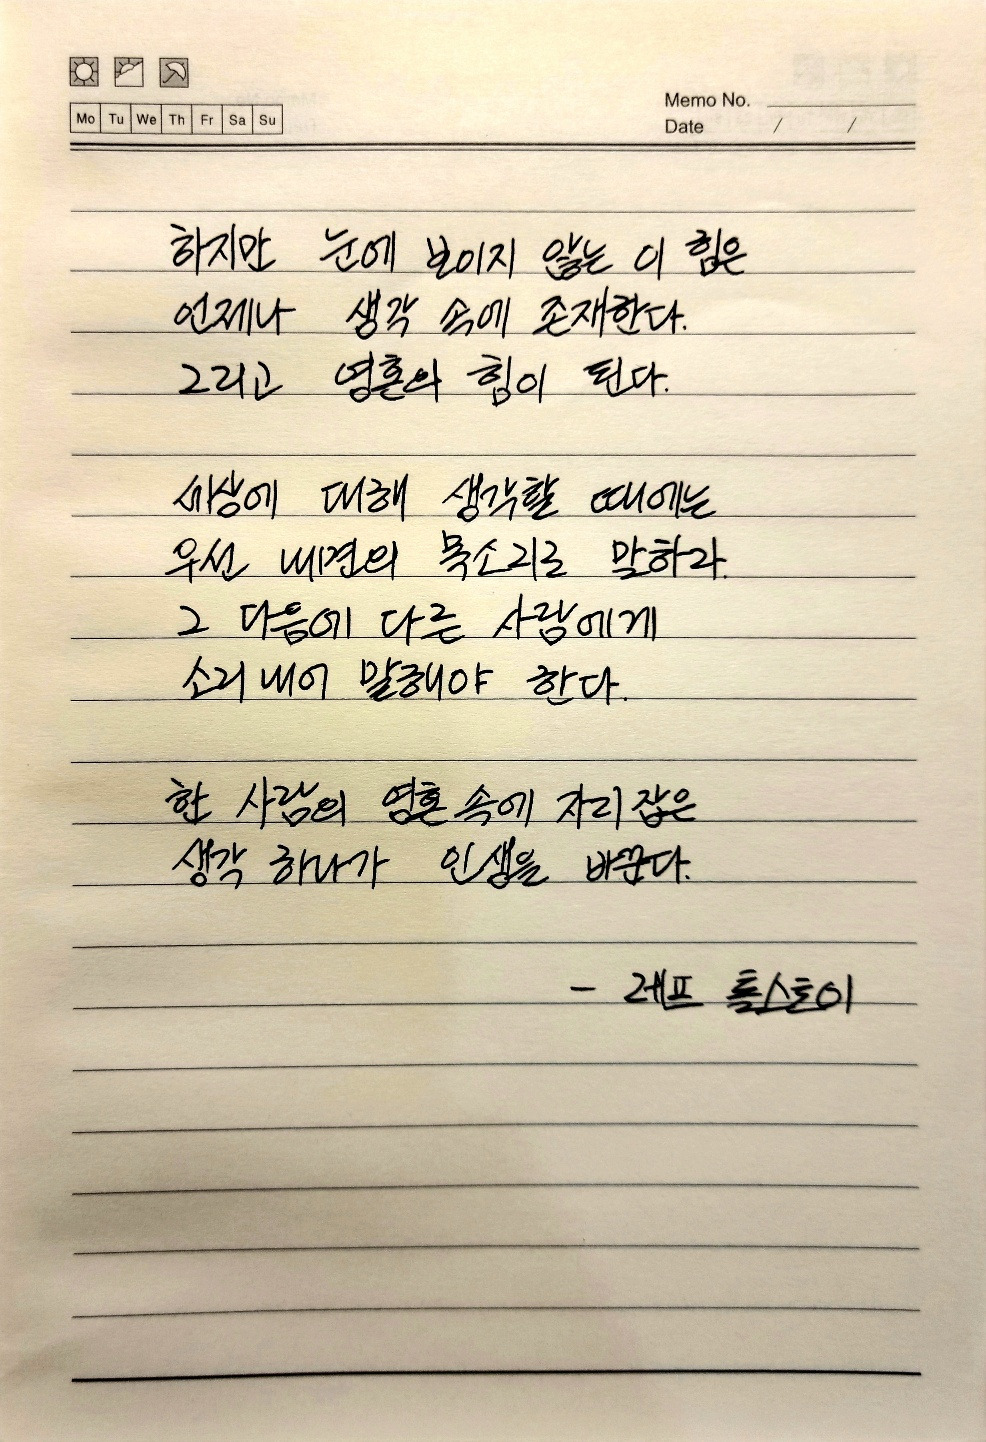 Mo Tu We Th Fr Sa Su
Memo No.
Date / /
하지만 눈에 보이지 않는 이 힘은
언제나 생각 속에 존재한다.
그리고 영혼의 힘이 된다.
세상에 대해 생각할 때에는
우선 내면의 목소리로 말하라.
그 다음에 다른 사람에게
소리내어 말해야 한다.
한 사람의 영혼 속에 자리 잡은
생각 하나가 인생을 바꾼다.
- 레프 톨스토이